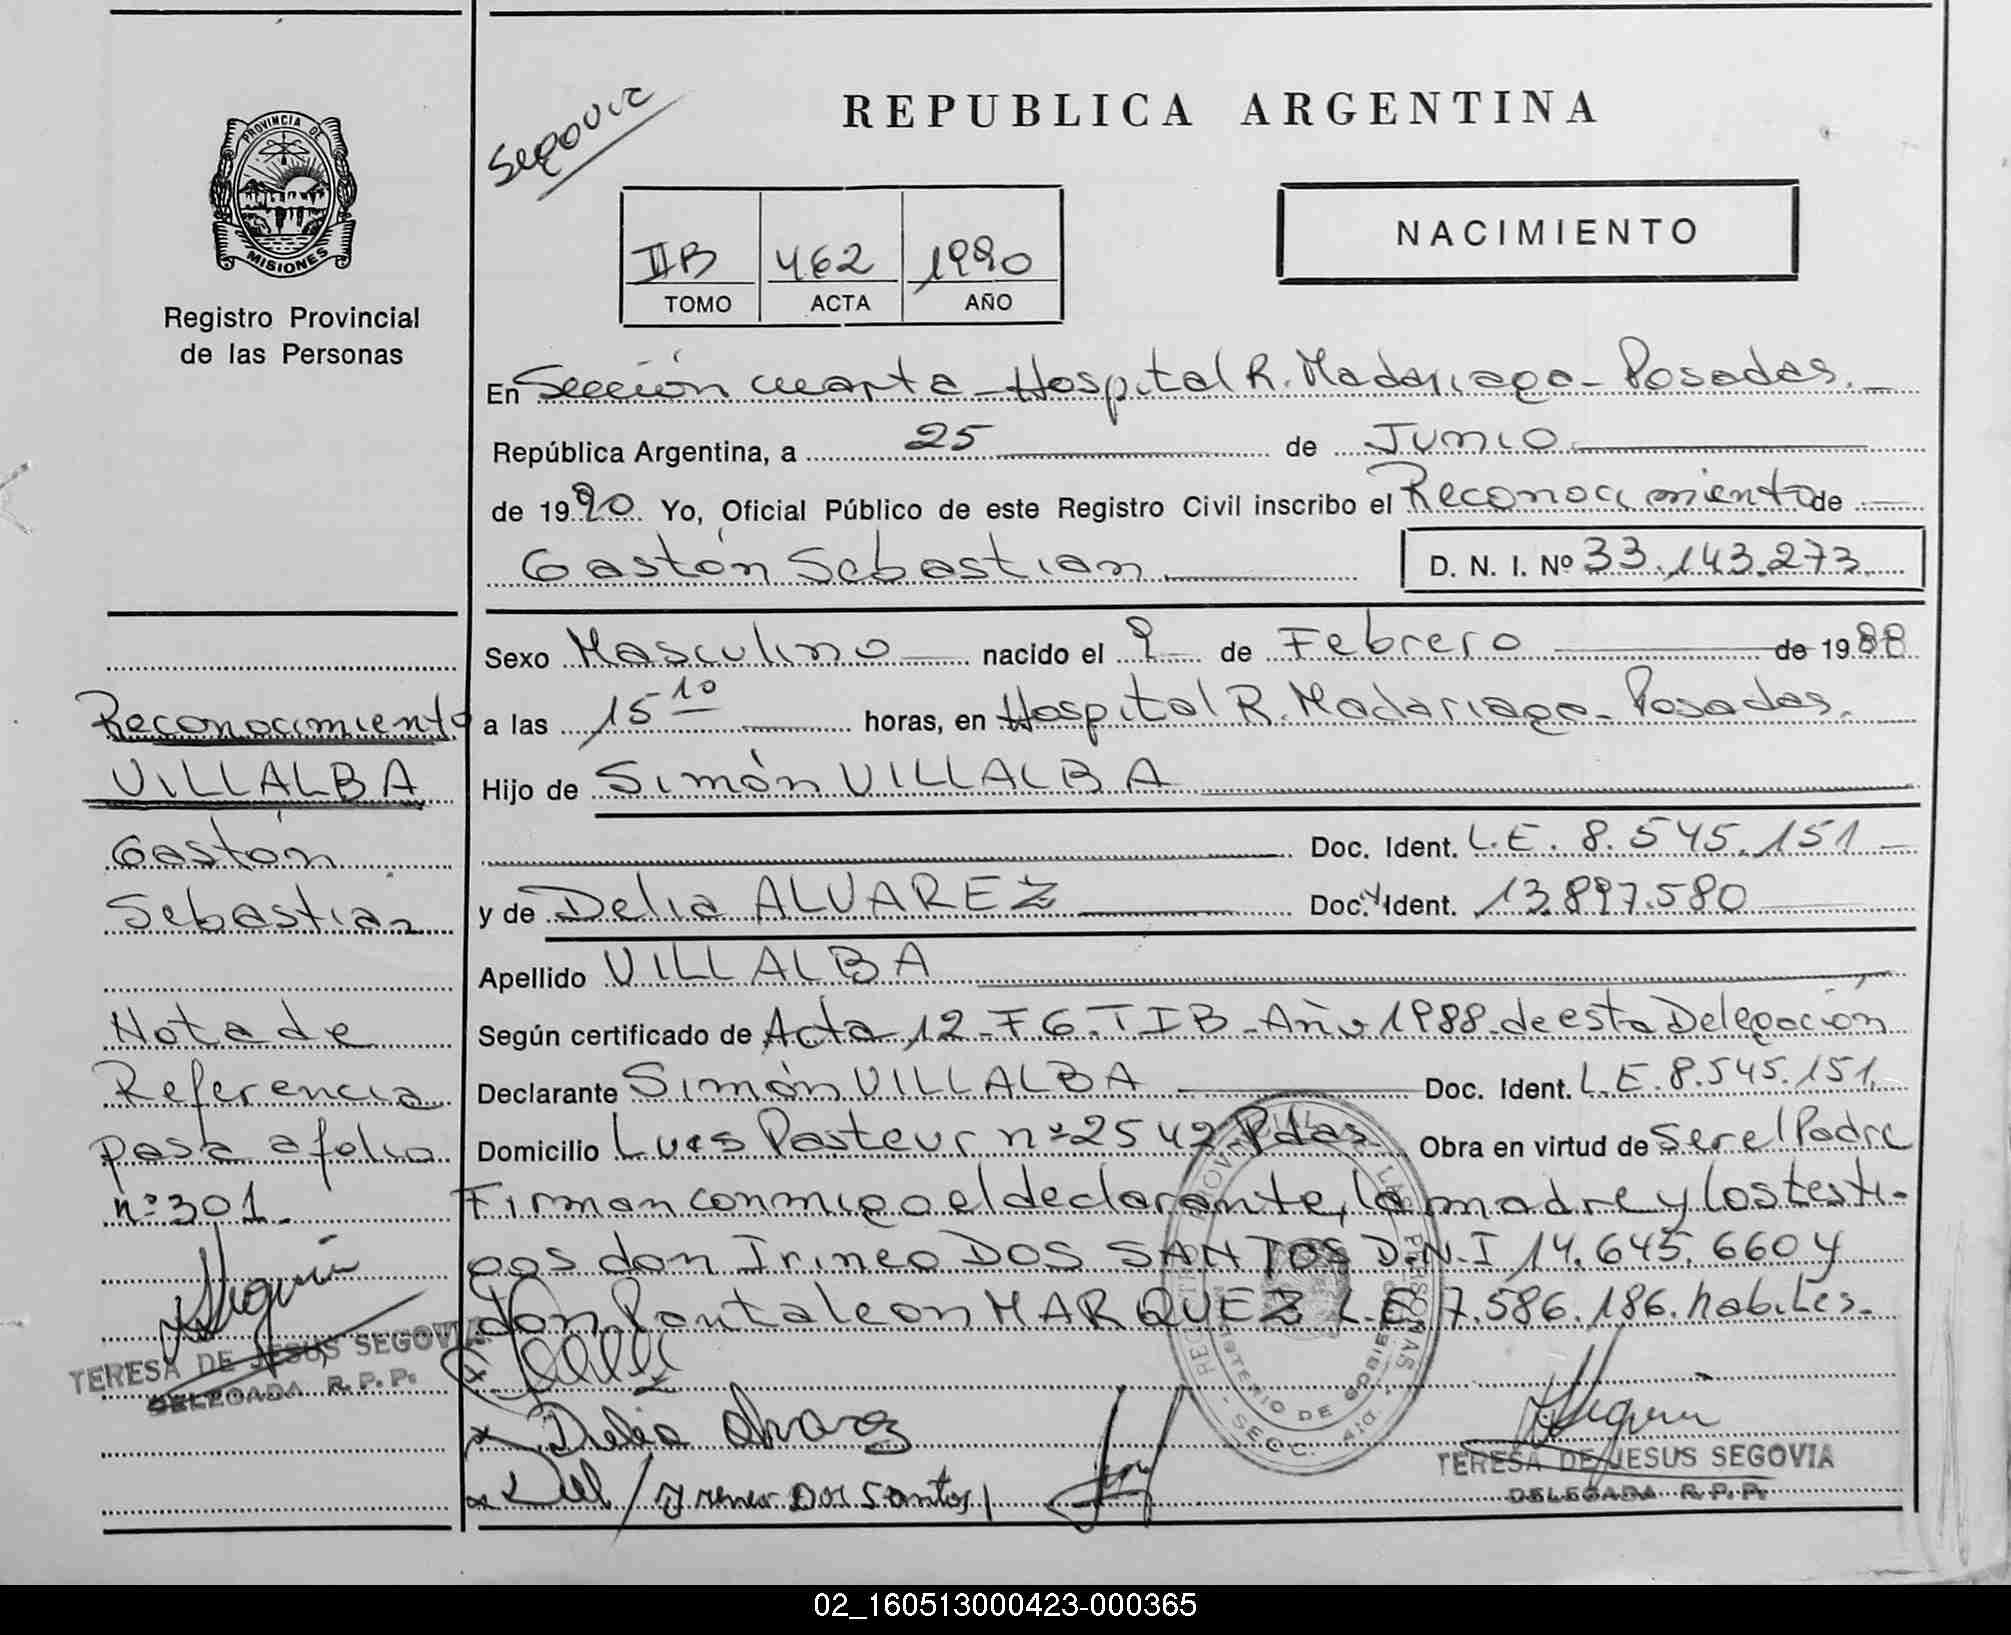 PROVINCIA DE
MISIONES
Registro Provincial
de las Personas
Segovia
REPUBLICA ARGENTINA
IIB 462 1990
TOMO ACTA AÑO
NACIMIENTO
En Sección cuarta - Hospital R. Madariaga - Posadas.
República Argentina, a 25 de Junio
de 1990 Yo, Oficial Público de este Registro Civil inscribo el Reconocimiento de
Gastón Sebastian D. N. I. Nº 33.143.273
Sexo Masculino nacido el 9 de Febrero de 1988
a las 15 10 horas, en Hospital R. Madariaga - Posadas.
Hijo de Simón VILLALBA
Doc. Ident. L.E. 8.545.151
y de Delia ALVAREZ Doc. Ident. 13.897.580
Apellido VILLALBA
Según certificado de Acta 12 - F 6. T I B - Año 1988 - de esta Delegación
Declarante Simón VILLALBA Doc. Ident. L.E. 8.545.151.
Domicilio Luis Pasteur nº 2542 Pdas. Obra en virtud de Ser el Padre
Firman conmigo el declarante, la madre y los testi-
gos don Irineo DOS SANTOS D.N.I 14.645.660 y
don Pantaleon MARQUEZ L.E. 7.586.186. habiles.
Delia Alvarez
Ireneo Dos Santos
TERESA DE JESUS SEGOVIA
DELEGADA R.P.P.
Reconocimiento
VILLALBA
Gastón
Sebastian
Nota de
Referencia
pasa a folio
nº 301.
TERESA DE JESUS SEGOVIA
DELEGADA R.P.P.
02_160513000423-000365